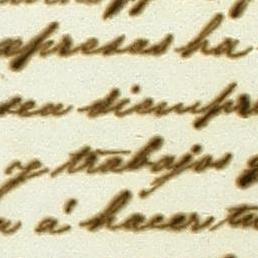 apresas ha
seu siempre
y trabajos
a á hacer tu